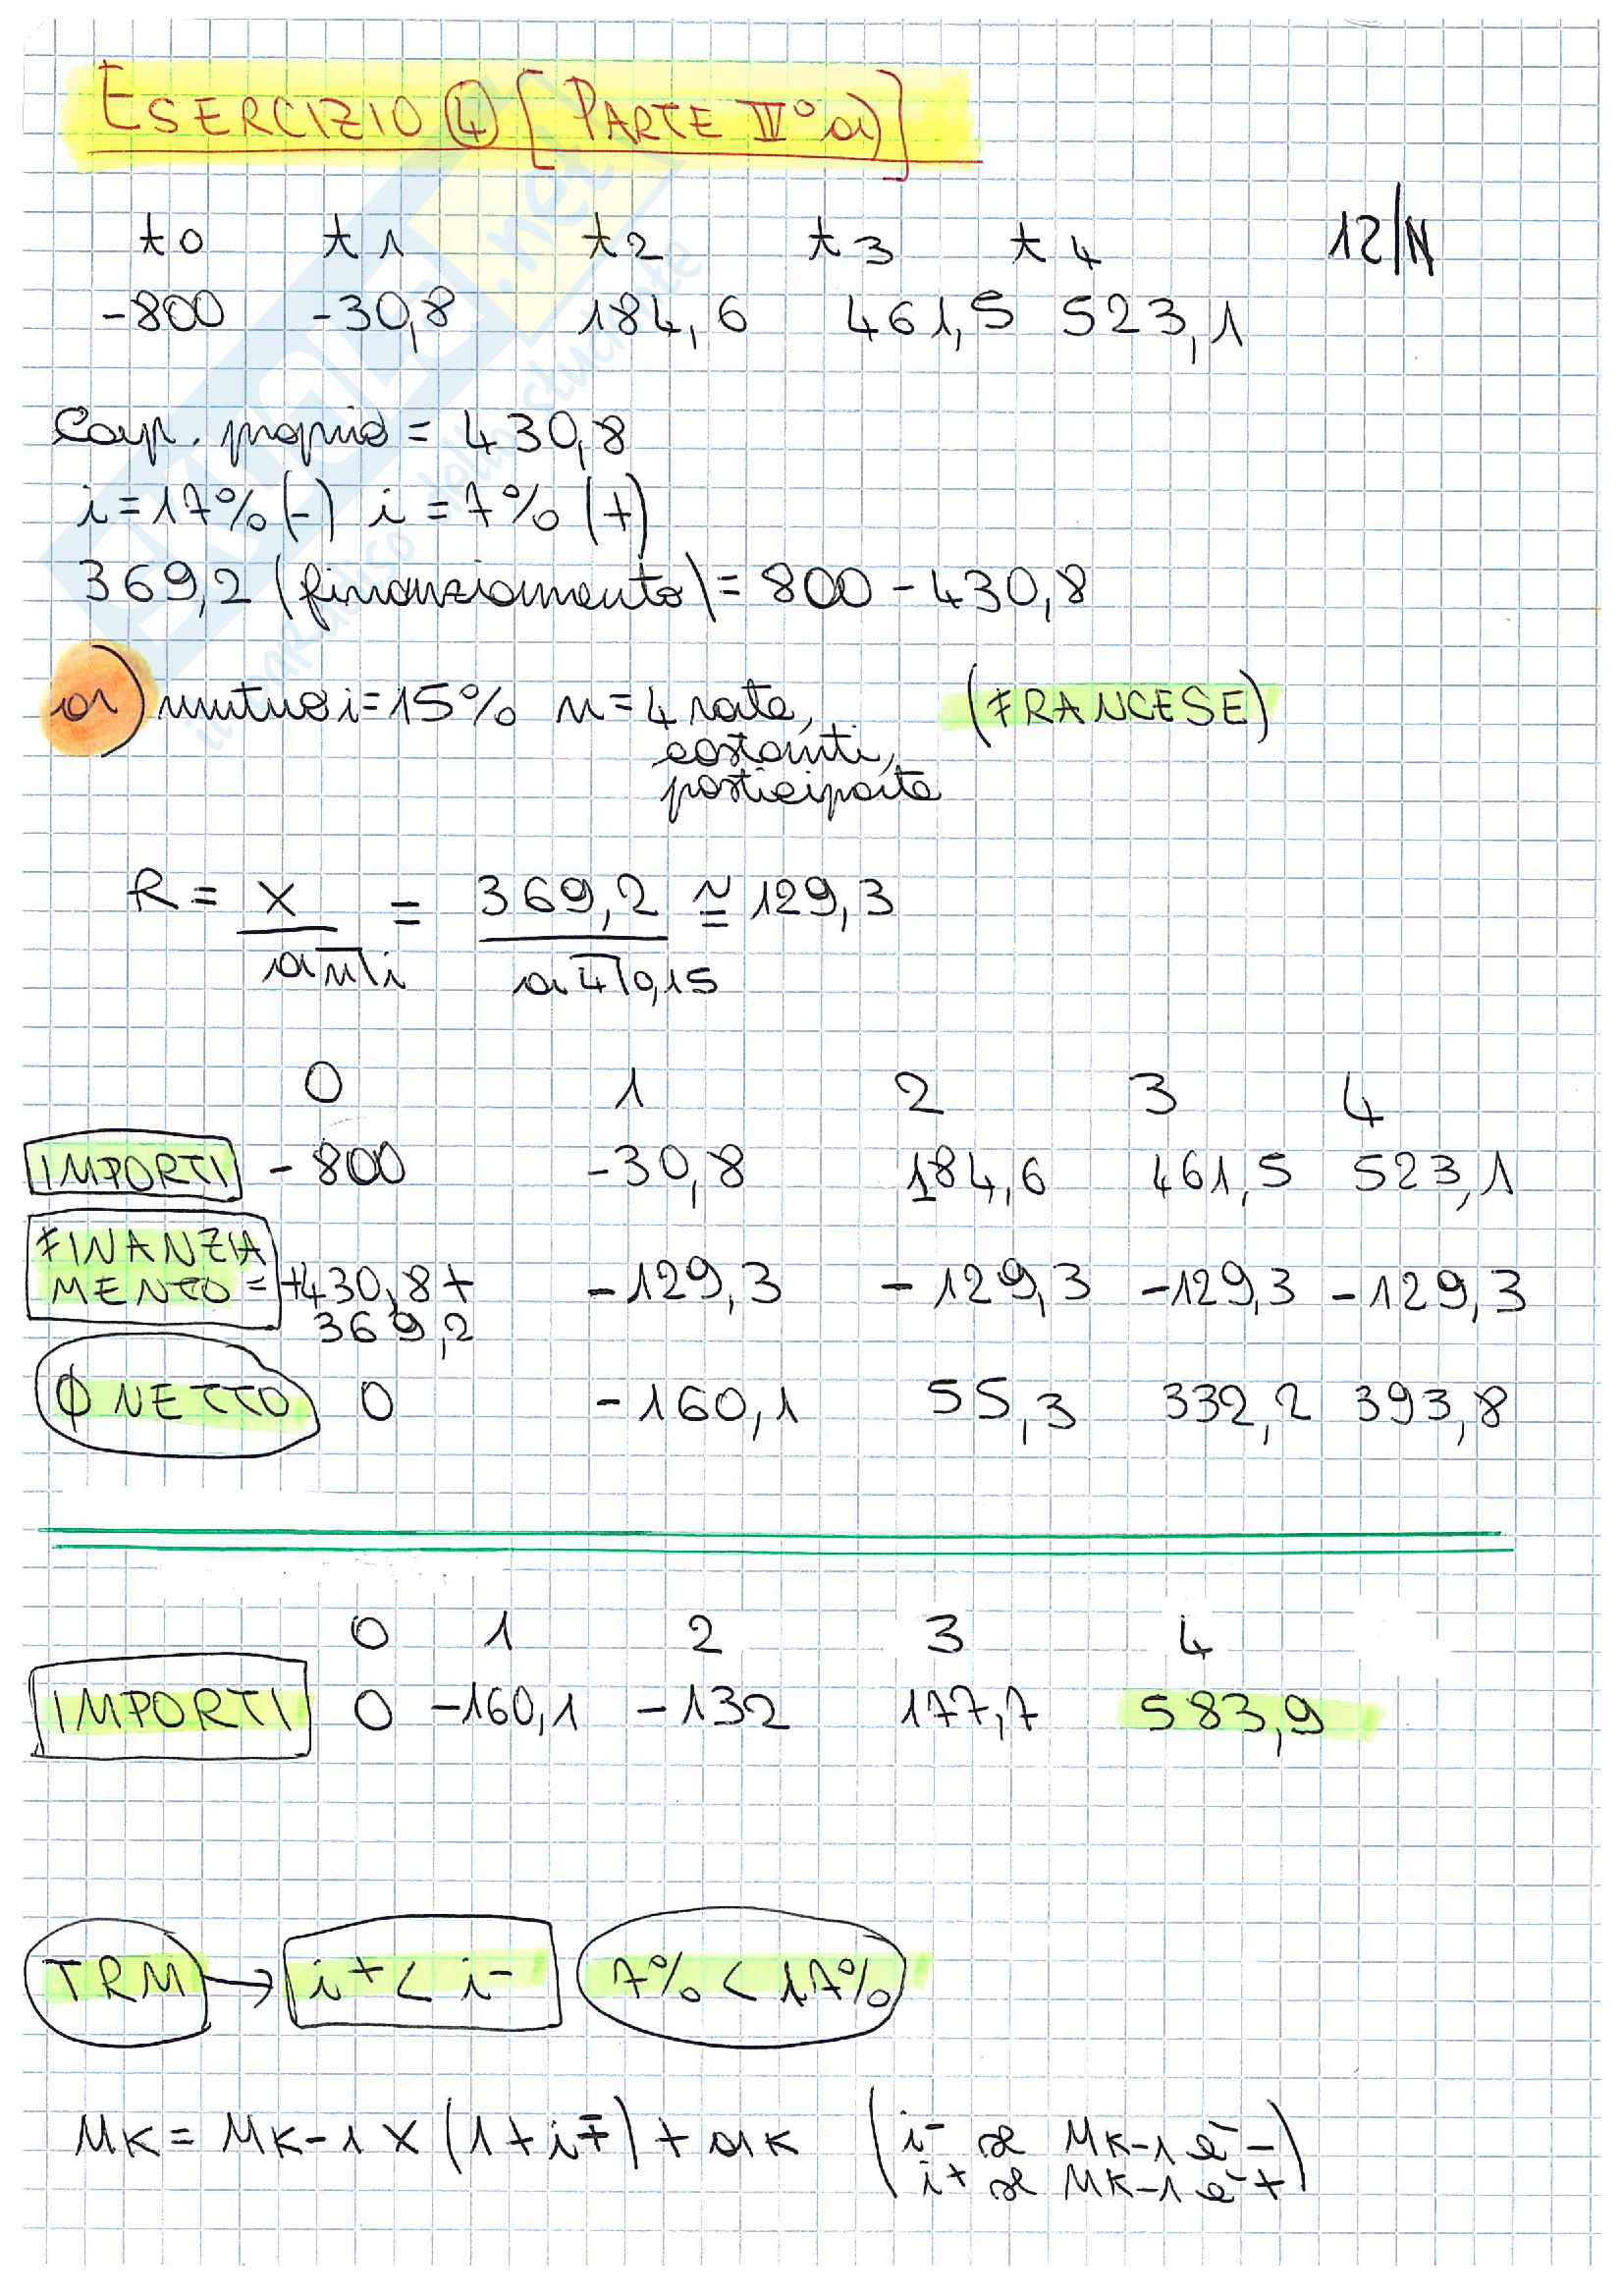 ESERCIZIO ④ [PARTE II° a)]
t0 t1 t2 t3 t4 12/N
-800 -30,8 184,6 461,5 523,1
Cap. proprio = 430,8
i=17% (-) i=7% (+)
369,2 (finanziamento) = 800 - 430,8
a) mutuo i=15% n=4 rate, (FRANCESE)
costanti,
posticipate
R = x / a n̅| i = 369,2 / a 4̅| 0,15 ≅ 129,3
0 1 2 3 4
IMPORTI -800 -30,8 184,6 461,5 523,1
FINANZIA
MENTO = +430,8+ -129,3 -129,3 -129,3 -129,3
369,2
Φ NETTO 0 -160,1 55,3 332,2 393,8
0 1 2 3 4
IMPORTI 0 -160,1 -132 177,7 583,9
TRM → i+ < i- 7% < 17%
MK = MK-1 x (1+i∓) + aK (i- se MK-1 è -
i+ se MK-1 è +)